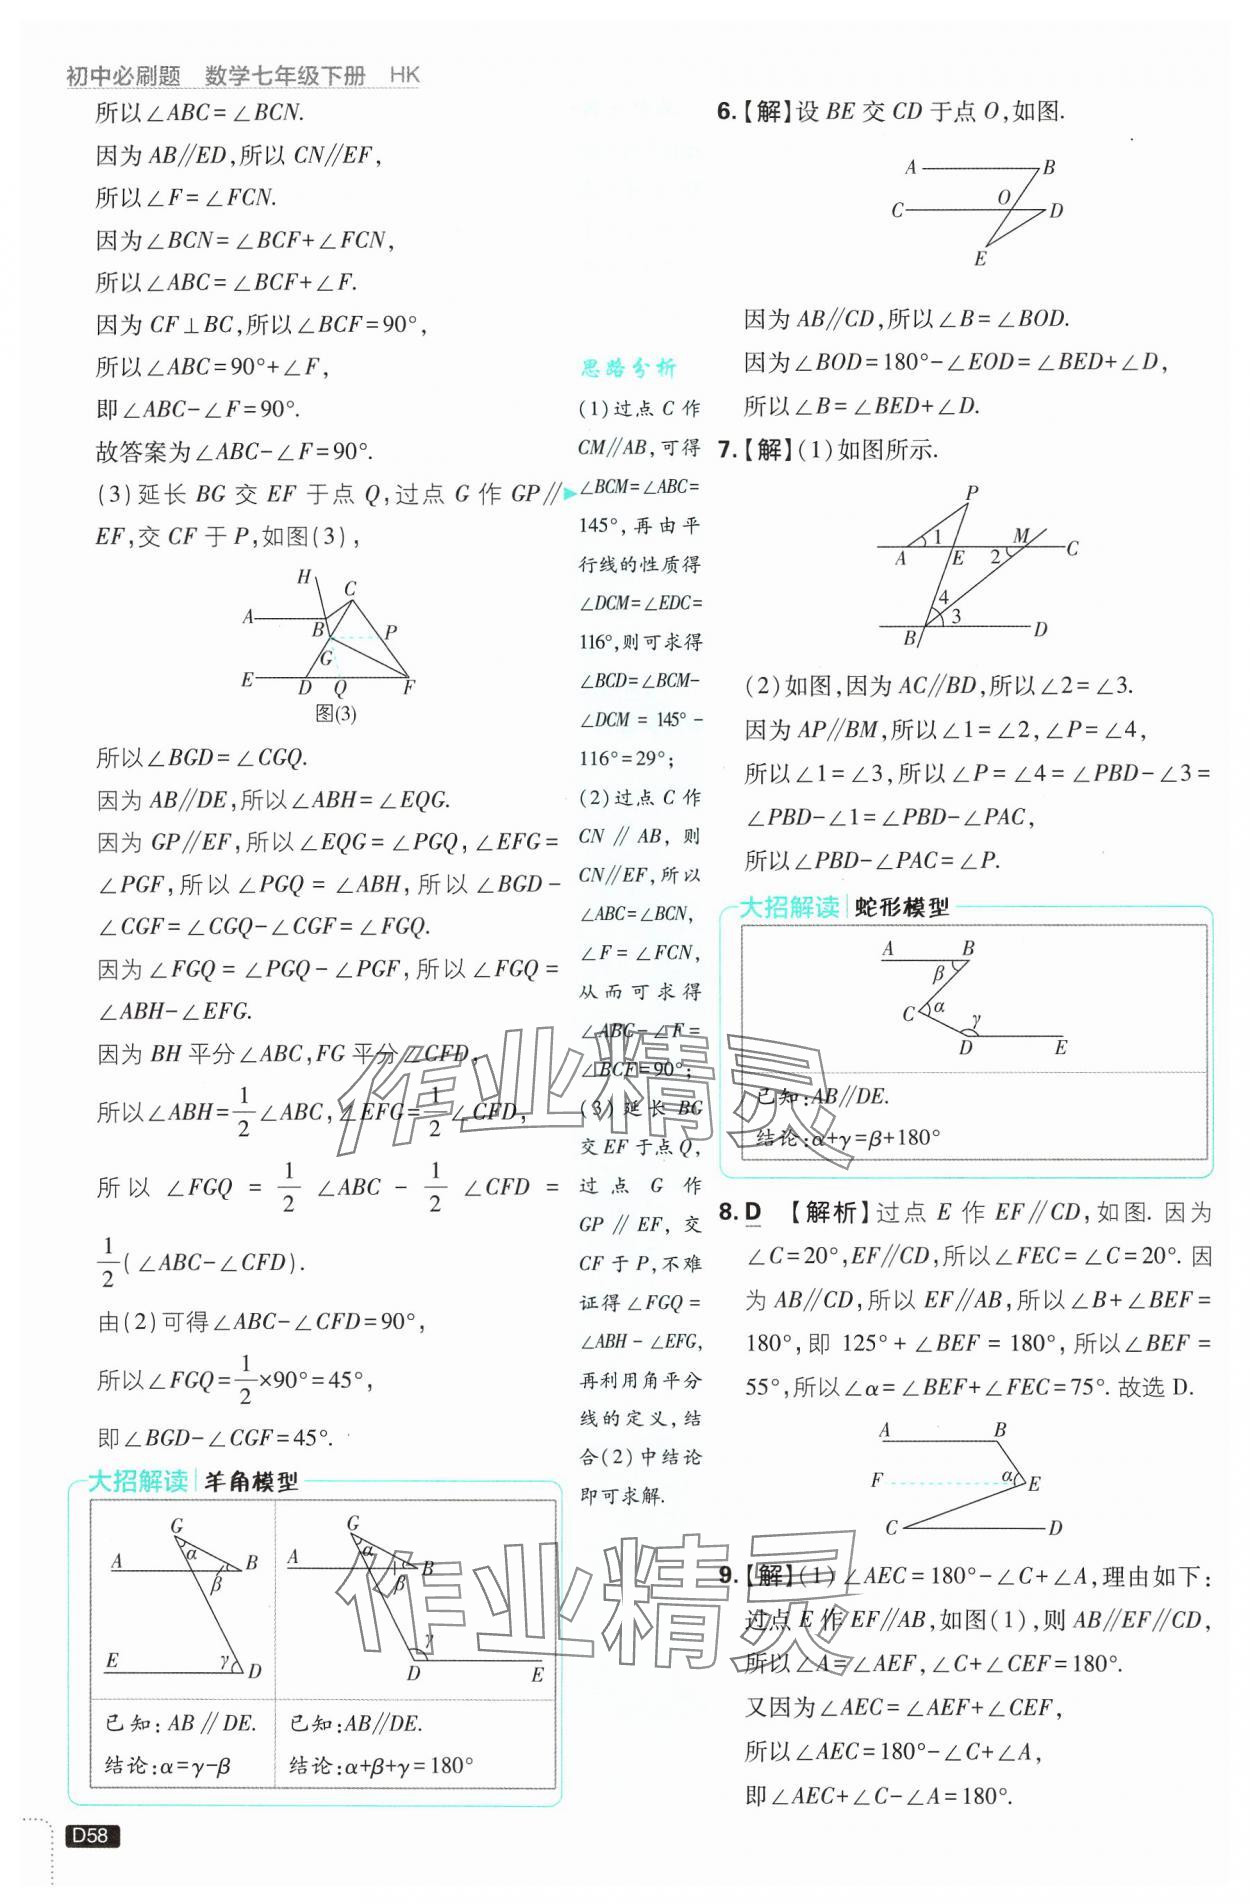 初中必刷题 数学七年级下册 HK
所以∠ABC=∠BCN.
因为 AB∥ED,所以 CN∥EF,
所以∠F=∠FCN.
因为∠BCN=∠BCF+∠FCN,
所以∠ABC=∠BCF+∠F.
因为 CF⊥BC,所以∠BCF=90°,
所以∠ABC=90°+∠F,
即∠ABC-∠F=90°.
故答案为∠ABC-∠F=90°.
(3)延长 BG 交 EF 于点 Q,过点 G 作 GP∥
EF,交 CF 于 P,如图(3),
H
C
A
B
P
G
E
D
Q
F
图(3)
所以∠BGD=∠CGQ.
因为 AB∥DE,所以∠ABH=∠EQG.
因为 GP∥EF,所以∠EQG=∠PGQ,∠EFG=
∠PGF,所以∠PGQ=∠ABH,所以∠BGD-
∠CGF=∠CGQ-∠CGF=∠FGQ.
因为∠FGQ=∠PGQ-∠PGF,所以∠FGQ=
∠ABH-∠EFG.
因为 BH 平分∠ABC,FG 平分∠CFD,
所以∠ABH=1/2∠ABC,∠EFG=1/2∠CFD,
所以∠FGQ=1/2∠ABC-1/2∠CFD=
1/2(∠ABC-∠CFD).
由(2)可得∠ABC-∠CFD=90°,
所以∠FGQ=1/2×90°=45°,
即∠BGD-∠CGF=45°.
大招解读 羊角模型
G
α
A
B
β
E
γ
D
G
α
A
B
β
γ
D
E
已知:AB∥DE.
结论:α=γ-β
已知:AB∥DE.
结论:α+β+γ=180°
D58
思路分析
(1)过点 C 作
CM∥AB,可得
∠BCM=∠ABC=
145°,再由平
行线的性质得
∠DCM=∠EDC=
116°,则可求得
∠BCD=∠BCM-
∠DCM=145°-
116°=29°;
(2)过点 C 作
CN∥AB,则
CN∥EF,所以
∠ABC=∠BCN,
∠F=∠FCN,
从而可求得
∠ABC-∠F=
∠BCF=90°;
(3)延长 BG
交 EF 于点 Q,
过点 G 作
GP∥EF,交
CF 于 P,不难
证得∠FGQ=
∠ABH-∠EFG,
再利用角平分
线的定义,结
合(2)中结论
即可求解.
6.【解】设 BE 交 CD 于点 O,如图.
A
B
O
C
D
E
因为 AB∥CD,所以∠B=∠BOD.
因为∠BOD=180°-∠EOD=∠BED+∠D,
所以∠B=∠BED+∠D.
7.【解】(1)如图所示.
P
1
M
A
E
2
C
4
3
B
D
(2)如图,因为 AC∥BD,所以∠2=∠3.
因为 AP∥BM,所以∠1=∠2,∠P=∠4,
所以∠1=∠3,所以∠P=∠4=∠PBD-∠3=
∠PBD-∠1=∠PBD-∠PAC,
所以∠PBD-∠PAC=∠P.
大招解读 蛇形模型
A
B
β
C
α
γ
D
E
已知:AB∥DE.
结论:α+γ=β+180°
8.D 【解析】过点 E 作 EF∥CD,如图. 因为
∠C=20°,EF∥CD,所以∠FEC=∠C=20°. 因
为 AB∥CD,所以 EF∥AB,所以∠B+∠BEF=
180°,即 125°+∠BEF=180°,所以∠BEF=
55°,所以∠α=∠BEF+∠FEC=75°. 故选 D.
A
B
F
α
E
C
D
9.【解】(1)∠AEC=180°-∠C+∠A,理由如下:
过点 E 作 EF∥AB,如图(1),则 AB∥EF∥CD,
所以∠A=∠AEF,∠C+∠CEF=180°.
又因为∠AEC=∠AEF+∠CEF,
所以∠AEC=180°-∠C+∠A,
即∠AEC+∠C-∠A=180°.
作业精灵
作业精灵